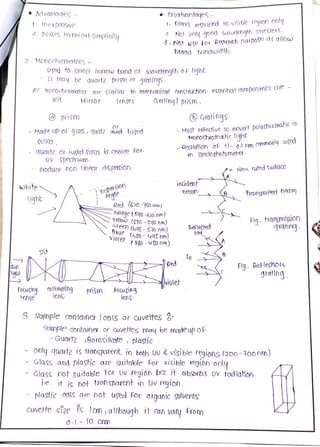 • Advantages -
1. Inexpensive
2. Posses technical simplicity
• Disadvantages -
1. Filters restricted to visible region only
2. Not very good wavelength selectors.
3. Not use for Research purpose as allow
broad bandwidth.
2. Monochromators -
- Used to select narrow band of wavelength of light.
- It may be quartz prism or gratings.
All monochromator are similar in mechanical construction essential components are -
slit Mirror lenses Grating / prism.
@ prism
- Made up of glass, quartz and fused
silica.
- quartz or fused silica is choice for
UV spectrum.
- produce non linear dispersion
White
light
Dispersion
Angle
Red
orange
Yellow
Green
Blue
Violet
@ Gratings
- Most effective to convert polychromatic to
monochromatic light
- Resolution of +/- 0.1 nm, commonly used
in spectrophotometer.
Ruled surface
incident
beam
Transmitted beam
Fig. Transmission
grating.
Reflected
A
B
Fig. Reflection
grating
slit
sun
light
focusing
lense
collimating
lens
prism
focusing
lens
Red
violet
3. Sample container / cells or cuvettes :-
Sample container or cuvettes may be made up of
- Quartz, Borosilicate, plastic
- only quartz is transparent in both UV & visible regions (200-700 nm)
- Glass and plastic are suitable for visible region only
- Glass not suitable for UV region b'cz it absorbs UV radiation
i.e. it is not transparent in UV region.
- plastic cells are not used for organic solvents
cuvette size is 1 cm, although it can vary from
0.1 - 10 cm